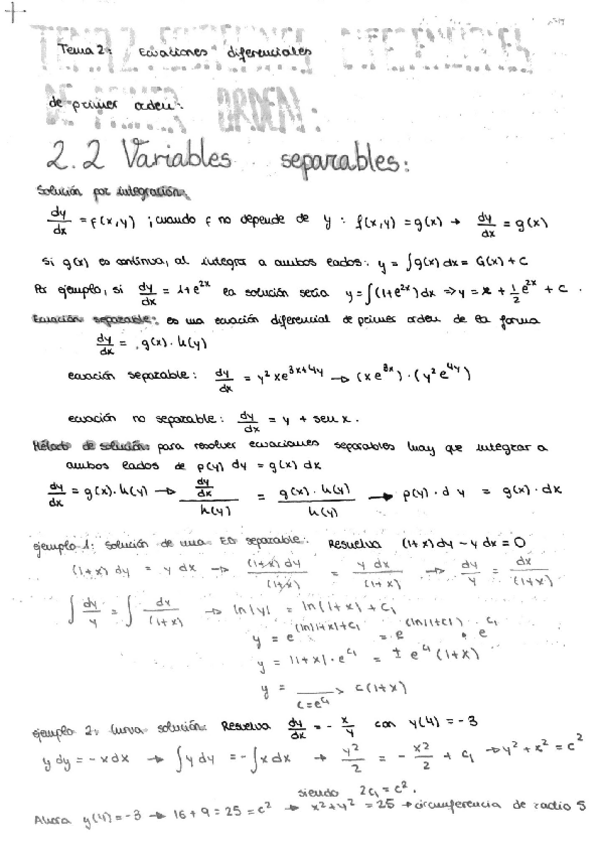 Tema 2: Ecuaciones diferenciales
de primer orden:
2.2 Variables separables:
Solución por integración:
dy/dx = f(x,y) ; cuando f no depende de y : f(x,y) = g(x) → dy/dx = g(x)
si g(x) es continua, al integrar a ambos lados: y = ∫g(x) dx = G(x) + C
Por ejemplo, si dy/dx = 1+e^{2x} la solución sería y = ∫(1+e^{2x}) dx ⇒ y = x + 1/2 e^{2x} + C .
Ecuación separable: es una ecuación diferencial de primer orden de la forma
dy/dx = g(x) · h(y)
ecuación separable: dy/dx = y² x e^{3x+4y} → (x e^{3x}) · (y² e^{4y})
ecuación no separable: dy/dx = y + sen x.
Método de solución: para resolver ecuaciones separables hay que integrar a
ambos lados de p(y) dy = g(x) dx
dy/dx = g(x) · h(y) → (dy/dx)/h(y) = g(x) · h(y)/h(y) → p(y) · dy = g(x) · dx
ejemplo 1: Solución de una ED separable: Resuelva (1+x) dy - y dx = 0
(1+x) dy = y dx → (1+x) dy/(1+x) = y dx/(1+x) → dy/y = dx/(1+x)
∫ dy/y = ∫ dx/(1+x) → ln|y| = ln|1+x| + C₁
y = e^{ln|1+x|+C₁} = e^{ln|1+x|} · e^{C₁}
y = |1+x| · e^{C₁} = ± e^{C₁} (1+x)
y = C=e^{C₁} > C(1+x)
ejemplo 2: Curva solución: Resuelva dy/dx = - x/y con y(4) = -3
y dy = - x dx → ∫ y dy = - ∫ x dx → y²/2 = - x²/2 + C₁ → y² + x² = c²
siendo 2C₁ = c².
Ahora y(4) = -3 → 16 + 9 = 25 = c² → x² + y² = 25 → circunferencia de radio 5